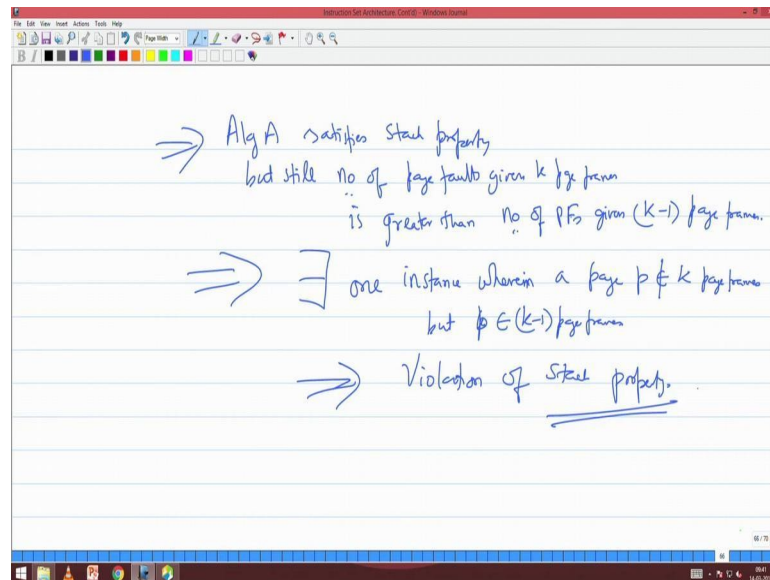 Instruction Set Architecture. Contd) - Windows Journal
File Edit View Insert Actions Tools Help
Page Width
B I
⇒ Alg A satisfies Stack property
but still no of page faults given k pge frames
is greater than no of PFs given (k-1) page frames.
⇒ ∃ one instance wherein a page p ∉ k page frames
but p ∈ (k-1) page frames
⇒ Violation of Stack property.
66 / 70
66
09:41